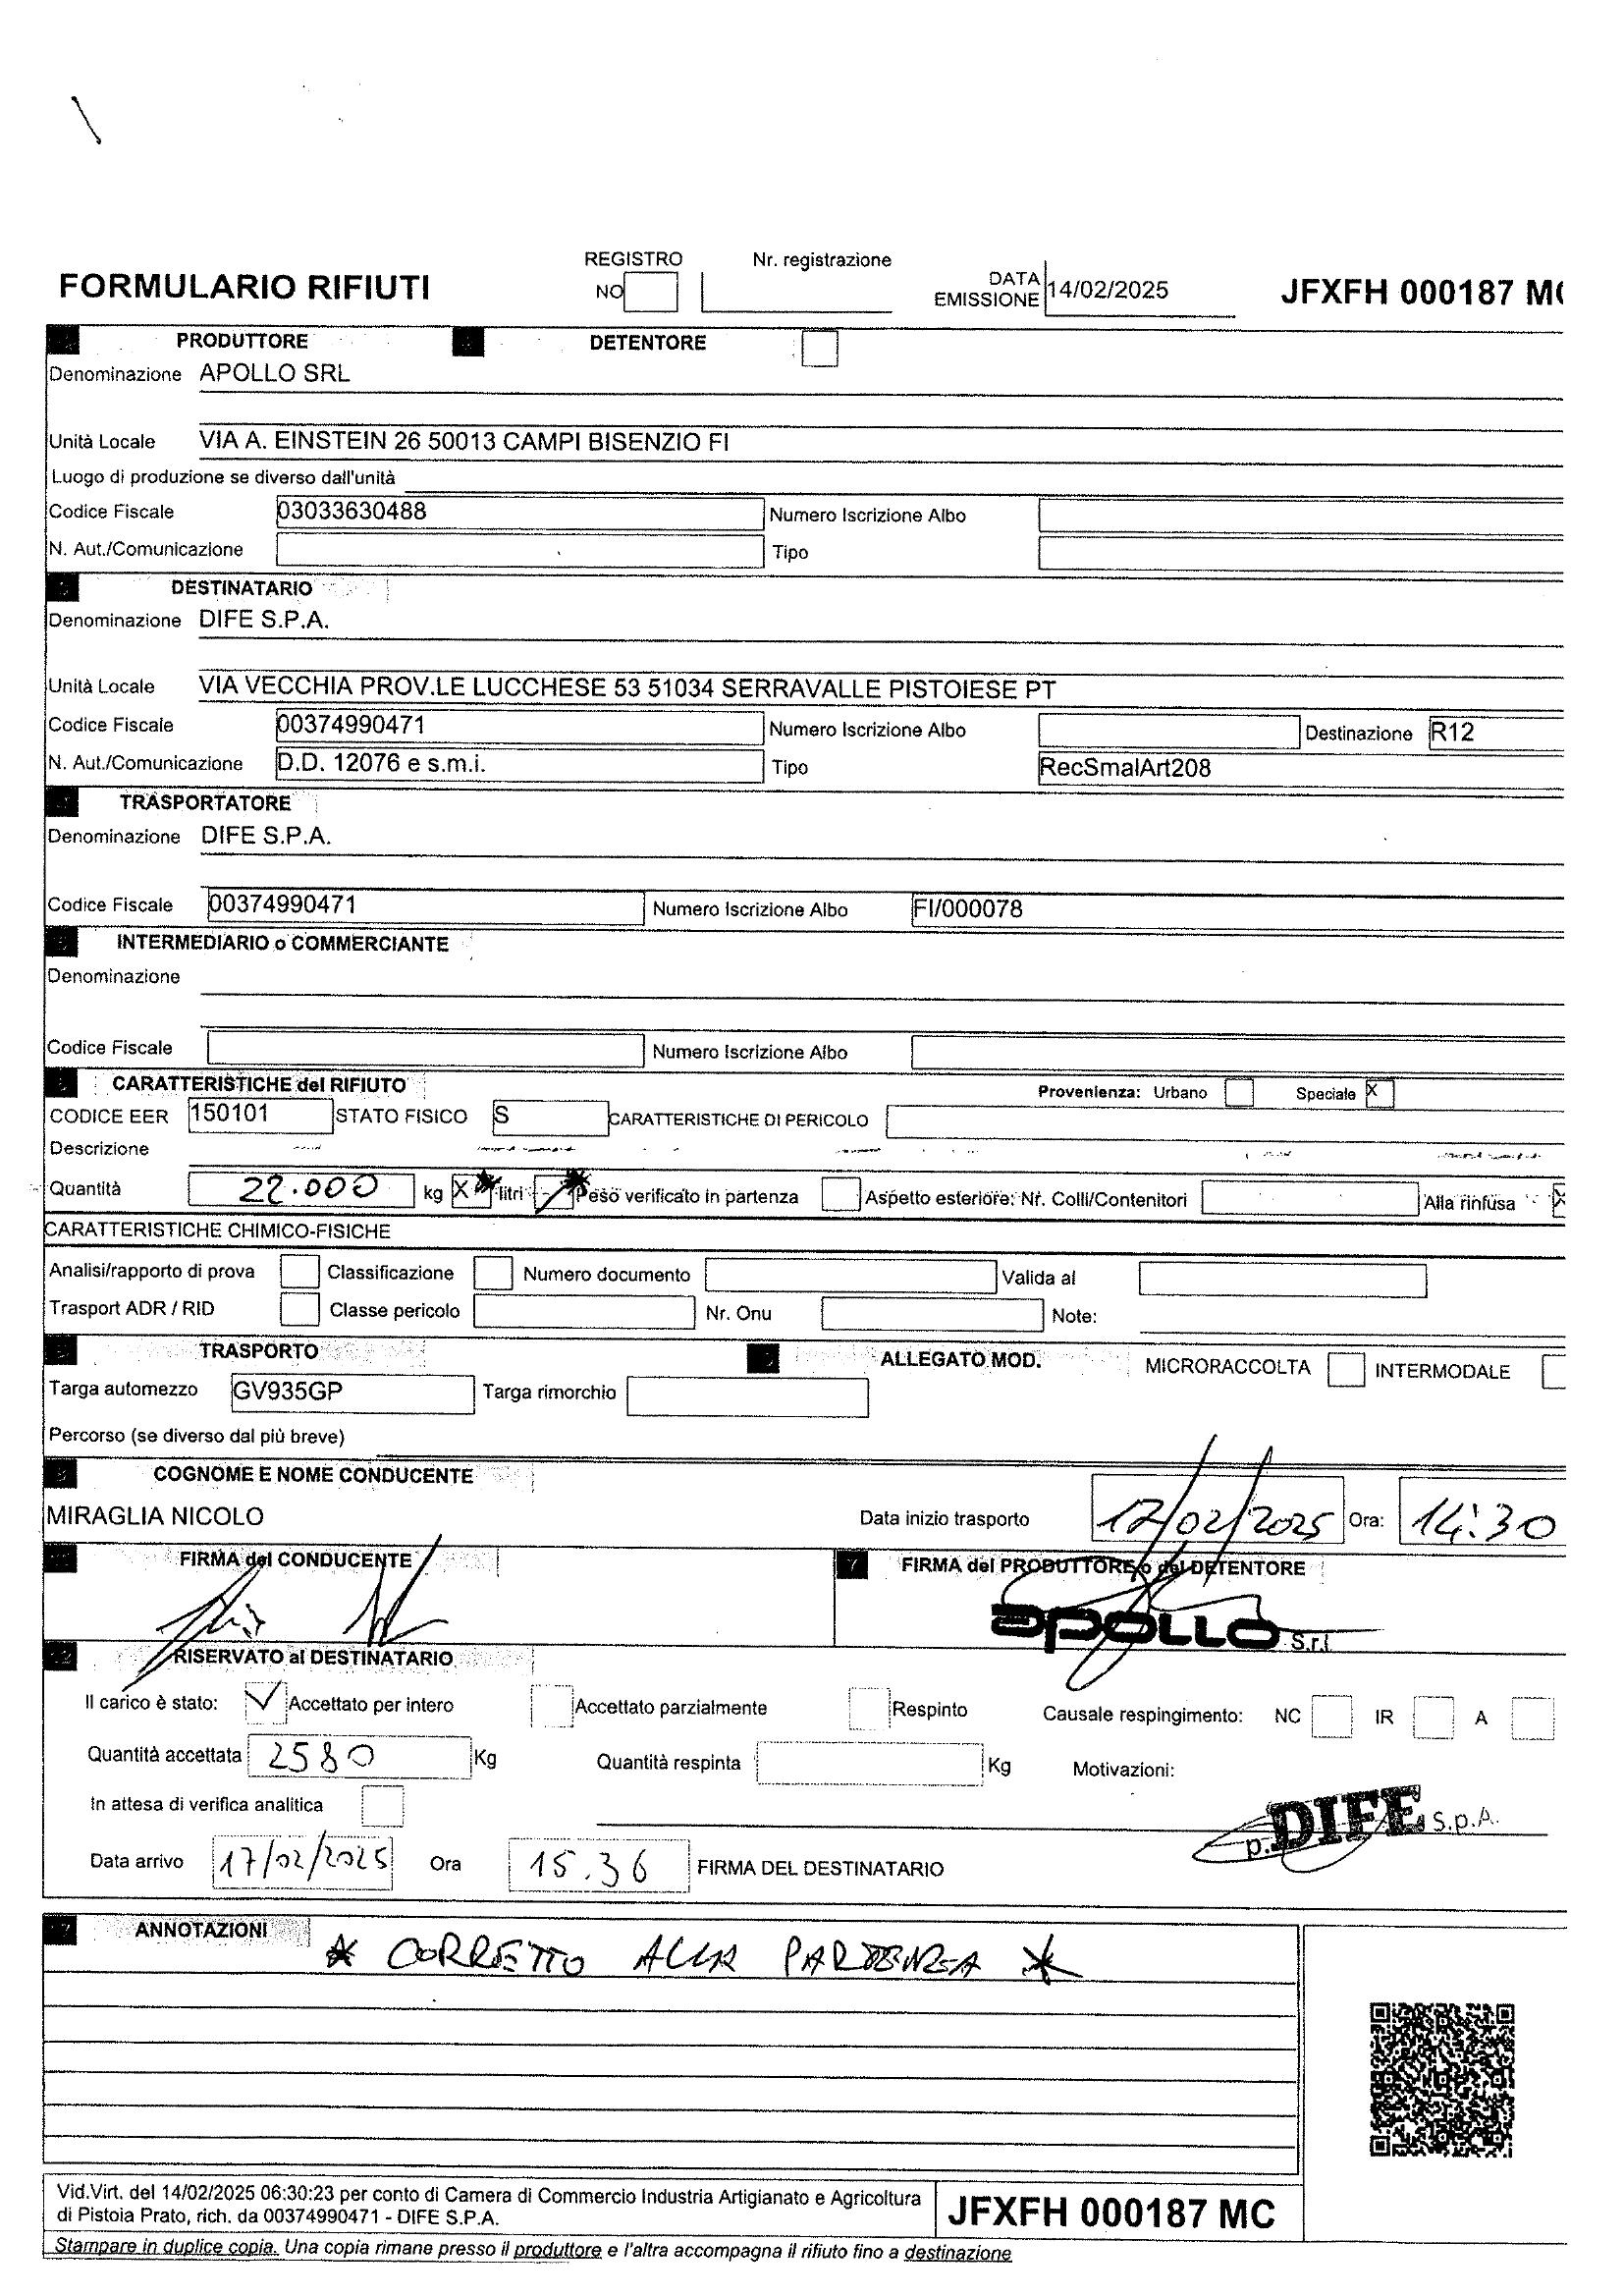 REGISTRO Nr. registrazione
FORMULARIO RIFIUTI NO DATA EMISSIONE 14/02/2025 JFXFH 000187 MC
PRODUTTORE DETENTORE
Denominazione APOLLO SRL
Unità Locale VIA A. EINSTEIN 26 50013 CAMPI BISENZIO FI
Luogo di produzione se diverso dall'unità
Codice Fiscale 03033630488 Numero Iscrizione Albo
N. Aut./Comunicazione Tipo
DESTINATARIO
Denominazione DIFE S.P.A.
Unità Locale VIA VECCHIA PROV.LE LUCCHESE 53 51034 SERRAVALLE PISTOIESE PT
Codice Fiscale 00374990471 Numero Iscrizione Albo Destinazione R12
N. Aut./Comunicazione D.D. 12076 e s.m.i. Tipo RecSmalArt208
TRASPORTATORE
Denominazione DIFE S.P.A.
Codice Fiscale 00374990471 Numero Iscrizione Albo FI/000078
INTERMEDIARIO o COMMERCIANTE
Denominazione
Codice Fiscale Numero Iscrizione Albo
CARATTERISTICHE del RIFIUTO Provenienza: Urbano Speciale X
CODICE EER 150101 STATO FISICO S CARATTERISTICHE DI PERICOLO
Descrizione
Quantità 22.000 kg X * litri * Peso verificato in partenza Aspetto esteriore: Nr. Colli/Contenitori Alla rinfusa X
CARATTERISTICHE CHIMICO-FISICHE
Analisi/rapporto di prova Classificazione Numero documento Valida al
Trasport ADR / RID Classe pericolo Nr. Onu Note:
TRASPORTO ALLEGATO MOD. MICRORACCOLTA INTERMODALE
Targa automezzo GV935GP Targa rimorchio
Percorso (se diverso dal più breve)
COGNOME E NOME CONDUCENTE
MIRAGLIA NICOLO Data inizio trasporto 17/02/2025 Ora: 14:30
FIRMA del CONDUCENTE 7 FIRMA del PRODUTTORE o del DETENTORE
apollo S.r.l.
RISERVATO al DESTINATARIO
Il carico è stato: Accettato per intero Accettato parzialmente Respinto Causale respingimento: NC IR A
Quantità accettata 2580 Kg Quantità respinta Kg Motivazioni:
In attesa di verifica analitica
p. DIFE S.p.A.
Data arrivo 17/02/2025 Ora 15.36 FIRMA DEL DESTINATARIO
ANNOTAZIONI
* CORRETTO ALLA PARTENZA *
Vid.Virt. del 14/02/2025 06:30:23 per conto di Camera di Commercio Industria Artigianato e Agricoltura
di Pistoia Prato, rich. da 00374990471 - DIFE S.P.A.
JFXFH 000187 MC
Stampare in duplice copia. Una copia rimane presso il produttore e l'altra accompagna il rifiuto fino a destinazione